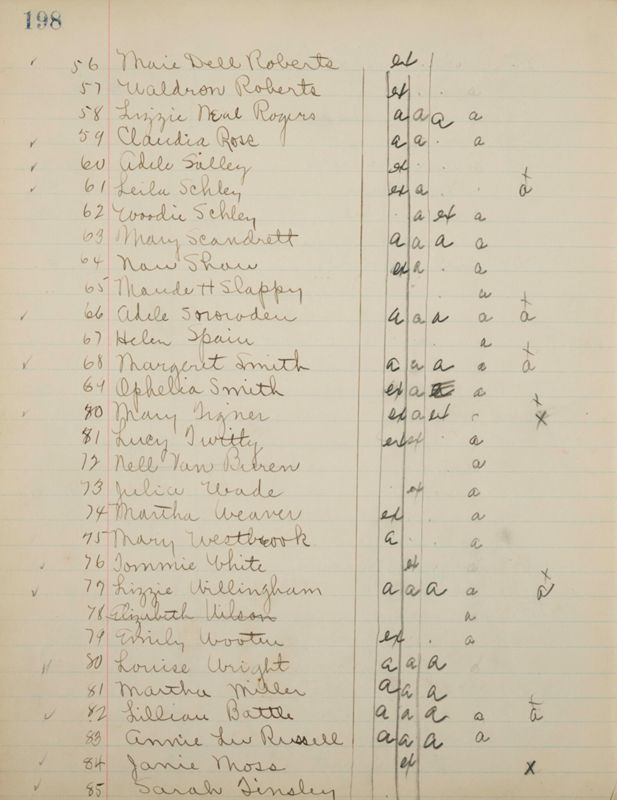 198
56 Marie Dell Roberts ex .
57 Waldron Roberts ex . .
58 Lizzie Neal Rogers a a a a
59 Claudia Rose a a . a
60 Adele Salley ex .
61 Leila Schley ex a . . a x
62 Woodie Schley . a ex a
63 Mary Scandrett a a a a
64 Nan Shaw ex a . a
65 Maude H Slappy a
66 Adele Snowden a a a a a x
67 Helen Spain a
68 Margaret Smith a a a a a x
69 Ophelia Smith ex a a
80 Mary Tigner ex a ex x x
81 Lucy Twitty ex ex a
72 Nell Van Buren a
73 Julia Wade ex a
74 Martha Weaver ex . . a
75 Mary Westbrook a . . a
76 Tommie White ex
77 Lizzie Willingham a a a a a x
78 Elizabeth Wilson a
79 Emily Wooten ex . a
80 Louise Wright a a a
81 Martha Miller a a a
82 Lillian Battle a a a a a x
83 Annie Lu Russell a a a a
84 Janie Moss ex x
85 Sarah Tinsley